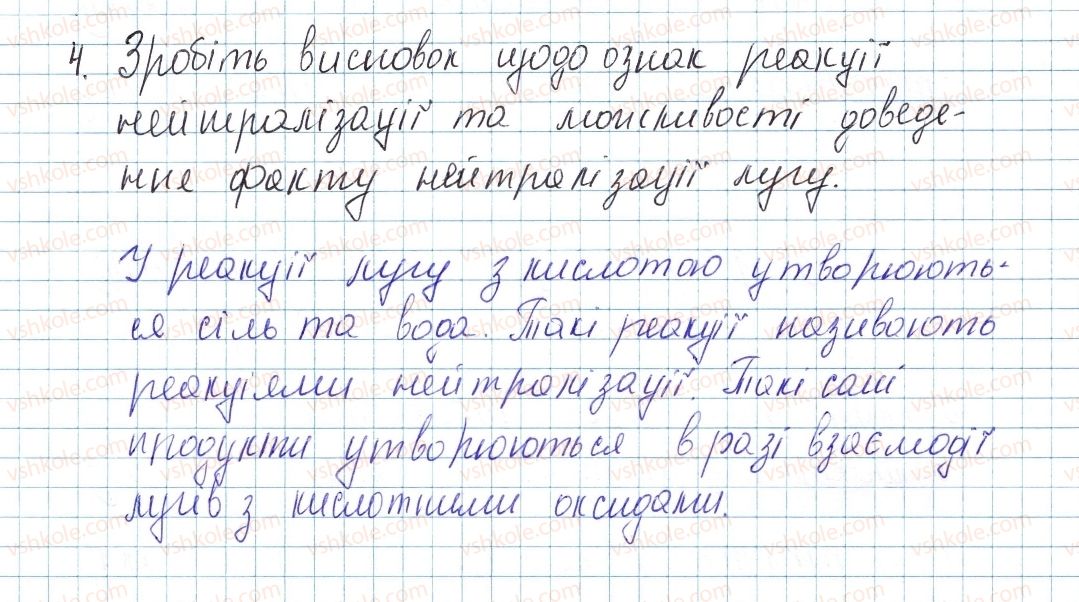 4. Зробіть висновок щодо ознак реакції
нейтралізації та можливості доведе-
ння факту нейтралізації лугу.
У реакції лугу з кислотою утворюють-
ся сіль та вода. Такі реакції називають
реакціями нейтралізації. Такі самі
продукти утворюються в разі взаємодії
лугів з кислотними оксидами.